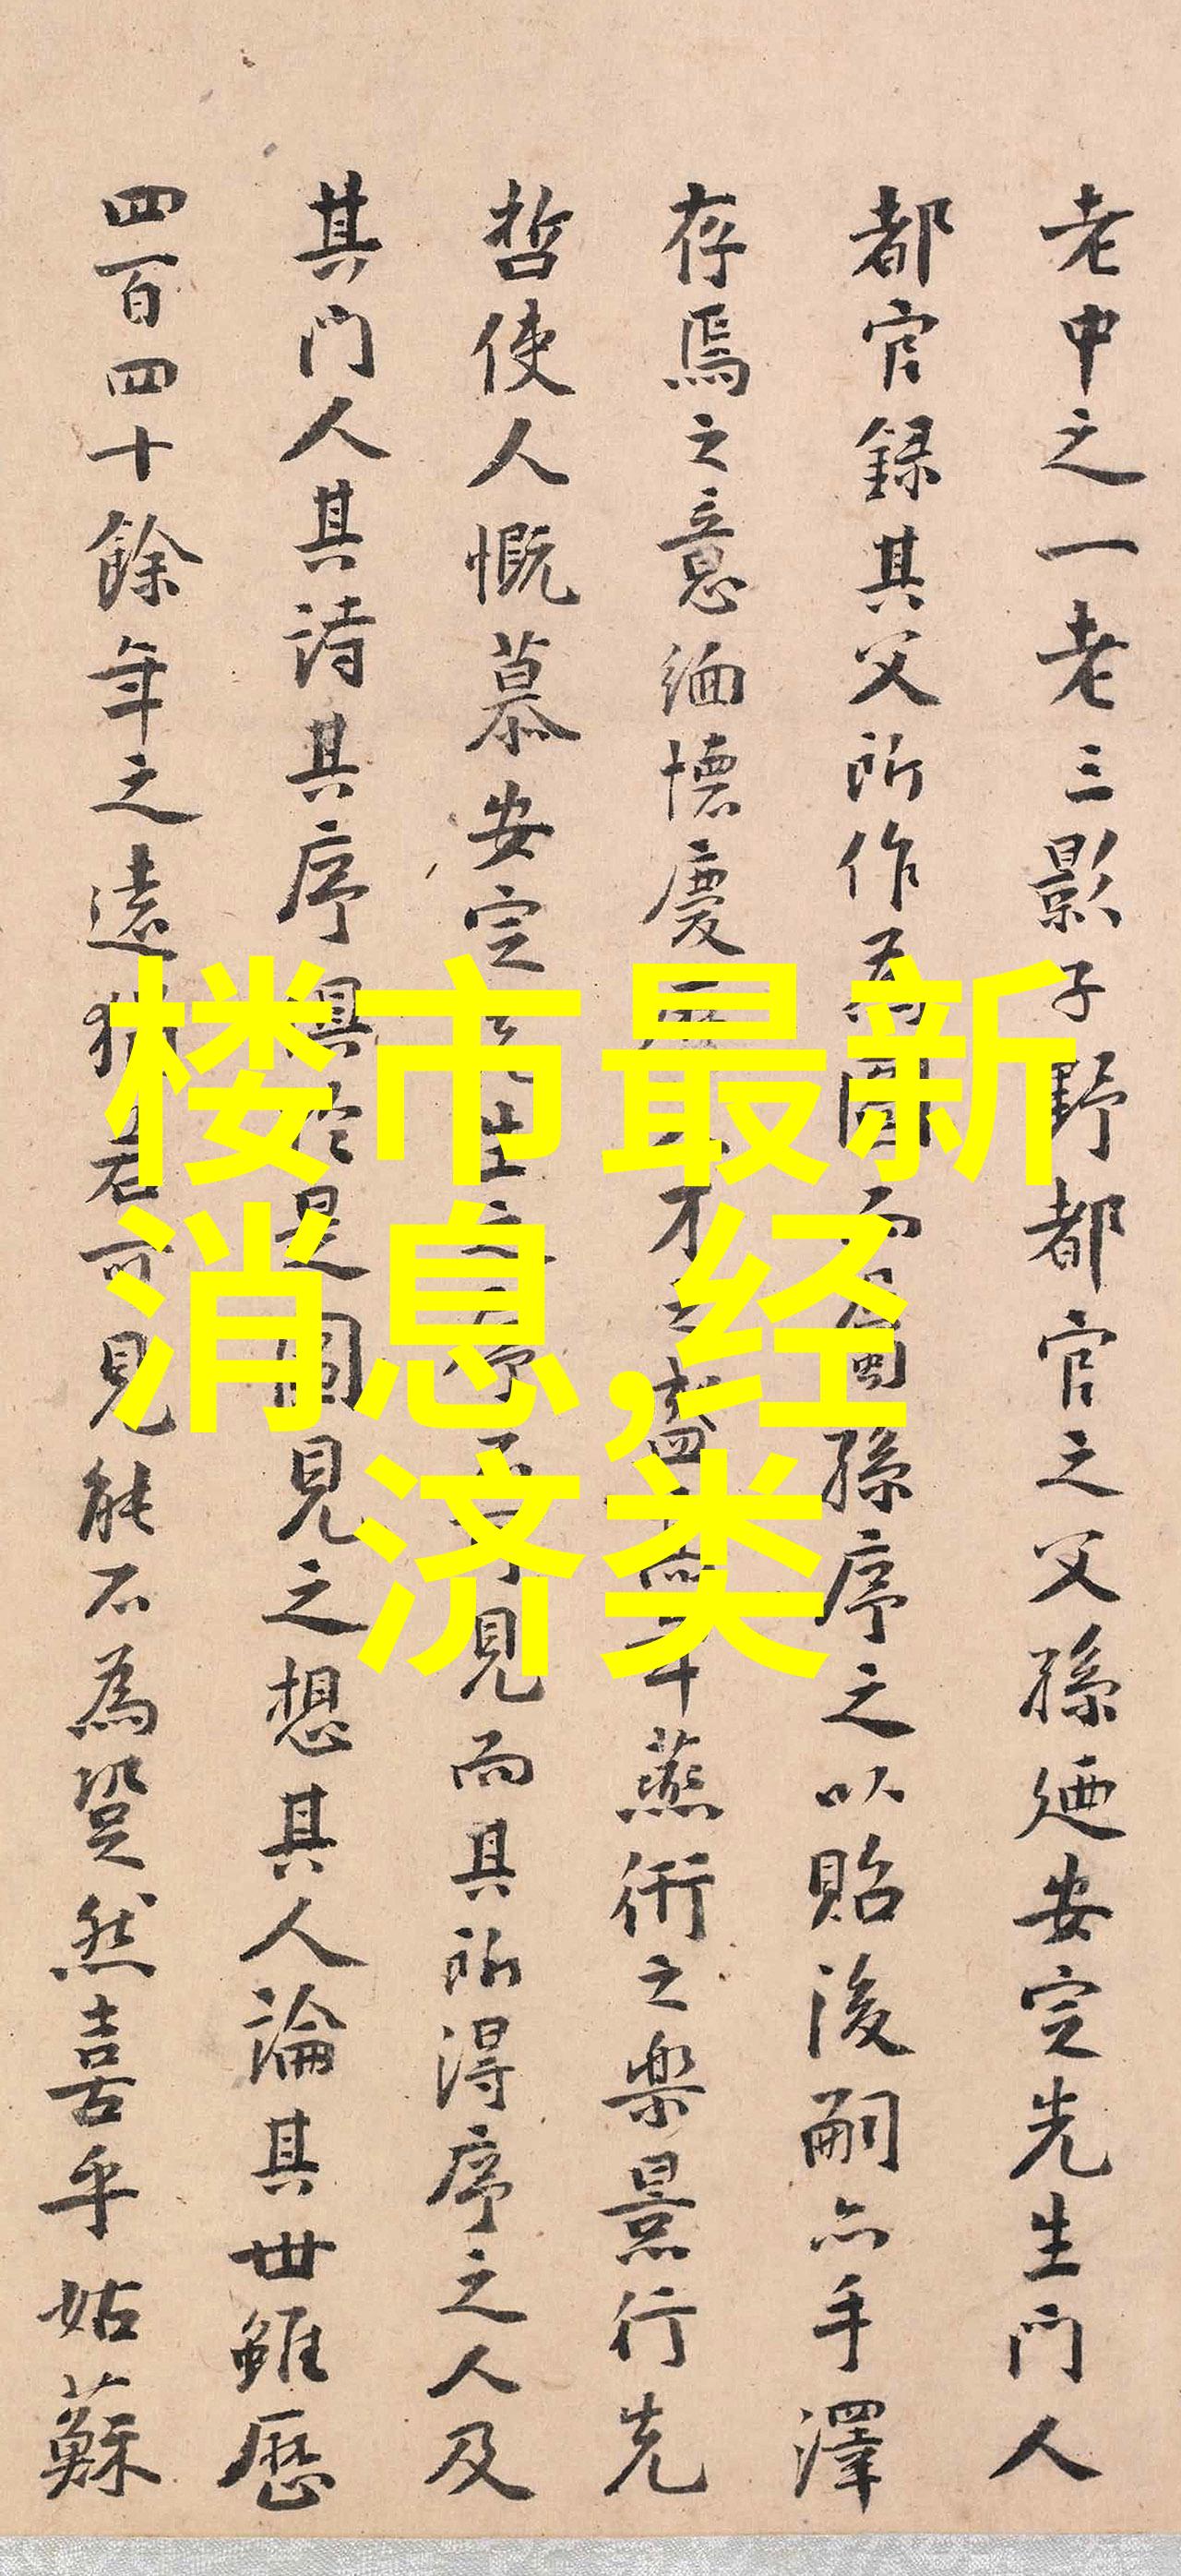 老中之一老三影子野都官之父孫廼安定先生門人
都官錄其父所作為圖序之以貽後嗣亦手澤
存焉之意緬懷慶不蕪衎之樂景行先
哲使人慨慕安定見而其所得序之人及
其門人其詩其序具於是圖見之想其人論其世雖歷
四百四十餘年之遠猶若可見能不為跫然喜乎姑蘇
楼市最新
消息,经
济类